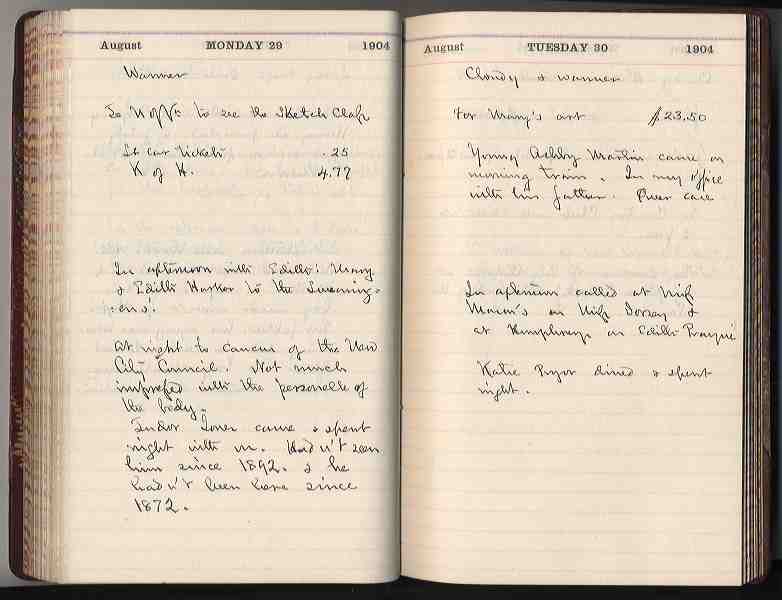 August MONDAY 29 1904
Warmer
To see the Sketch Class
St Car Tickets .25
K of H. 4.77
In afternoon with Edith, Mary
& Edith Harker to the
At night to caucus of the New
City Council. Not much
impressed with the personelle of
the body.
Jones came & spent
night with us. Hadn't seen
him since 1892. & he
hadn't been here since
1872.
August TUESDAY 30 1904
Cloudy & warmer
For Mary's art $23.50
Young Ashby Martin came on
morning train. In my office
with his father. Over case
In afternoon called at Miss
on Miss Dorsay &
at Humphreys on Edith
Katie Pryor dined & spent
night.